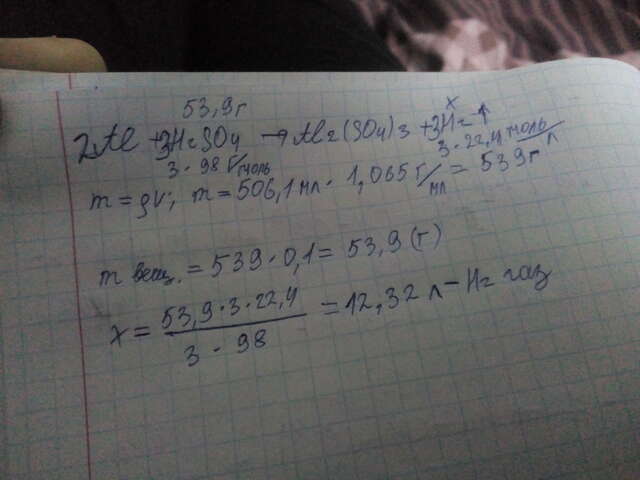 53,9 г x
2Al + 3H2SO4 → Al2(SO4)3 + 3H2↑
3·98 г/моль 3·22,4 моль/л
m = ρV; m = 506,1 мл · 1,065 г/мл = 539 г
m вещ. = 539 · 0,1 = 53,9 (г)
x = 53,9·3·22,4 / 3·98 = 12,32 л – H2 газ